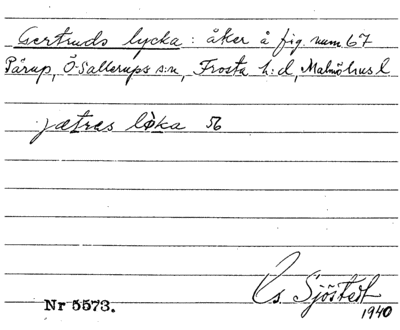 Gertruds lycka: åker å fig. num 67
Pårup, Ö. Sallerups s:n, Frosta h:d, Malmöhus l
jætras løka 56
Gs. Sjöstedt
1940
Nr 5573.